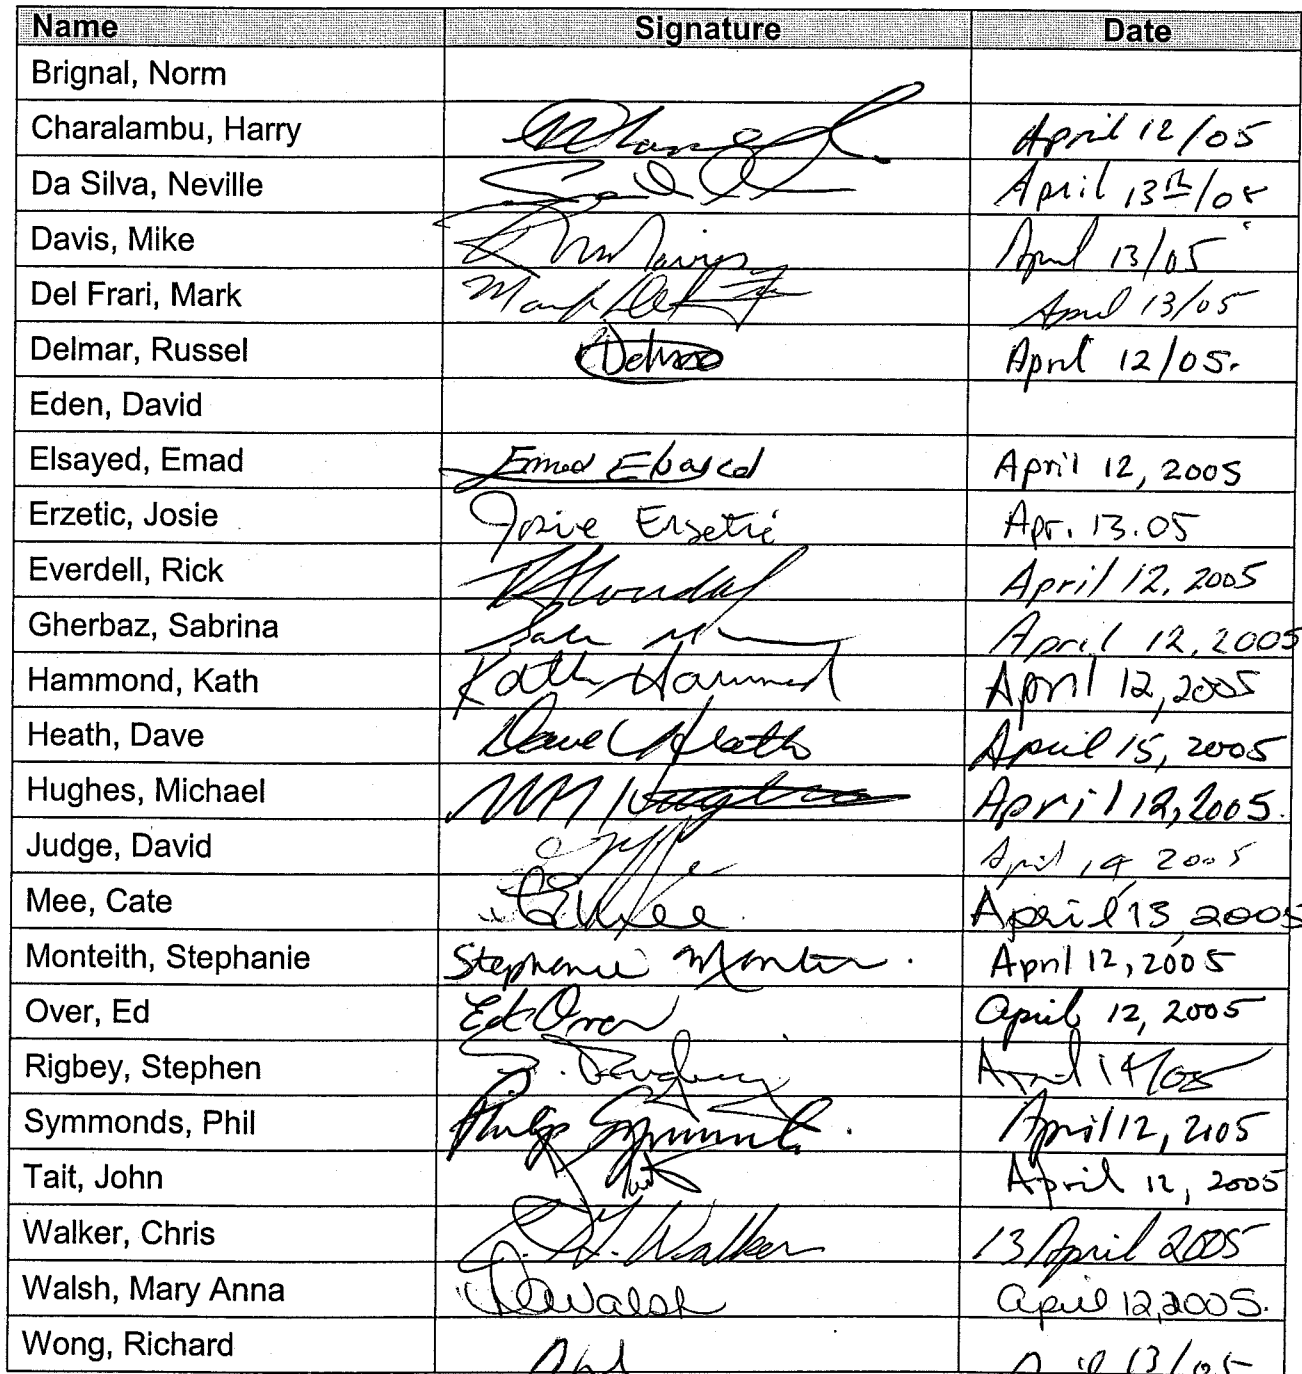 Name Signature Date
Brignal, Norm
Charalambu, Harry April 12/05
Da Silva, Neville April 13th/05
Davis, Mike April 13/05
Del Frari, Mark Mark Del April 13/05
Delmar, Russel April 12/05.
Eden, David
Elsayed, Emad Emad Elsayed April 12, 2005
Erzetic, Josie Josie Erzetic Apr. 13.05
Everdell, Rick April 12, 2005
Gherbaz, Sabrina April 12, 2005
Hammond, Kath Kath Hammond April 12, 2005
Heath, Dave Dave Heath April 15, 2005
Hughes, Michael April 12, 2005.
Judge, David April 14, 2005
Mee, Cate April 13, 2005
Monteith, Stephanie Stephanie April 12, 2005
Over, Ed Ed Over April 12, 2005
Rigbey, Stephen April 14/05
Symmonds, Phil April 12, 2005
Tait, John April 12, 2005
Walker, Chris Walker 13 April 2005
Walsh, Mary Anna Walsh April 12, 2005.
Wong, Richard April 13/05